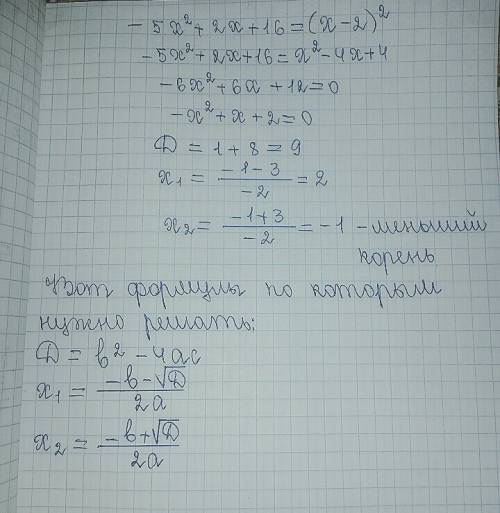 - 5x² + 2x + 16 = (x - 2)²
- 5x² + 2x + 16 = x² - 4x + 4
- 6x² + 6x + 12 = 0
- x² + x + 2 = 0
D = 1 + 8 = 9
x₁ = (-1 - 3)/(-2) = 2
x₂ = (-1 + 3)/(-2) = -1 - меньший
корень
Вот формулы по которым
нужно решать:
D = b² - 4ac
x₁ = (-b - √D)/(2a)
x₂ = (-b + √D)/(2a)